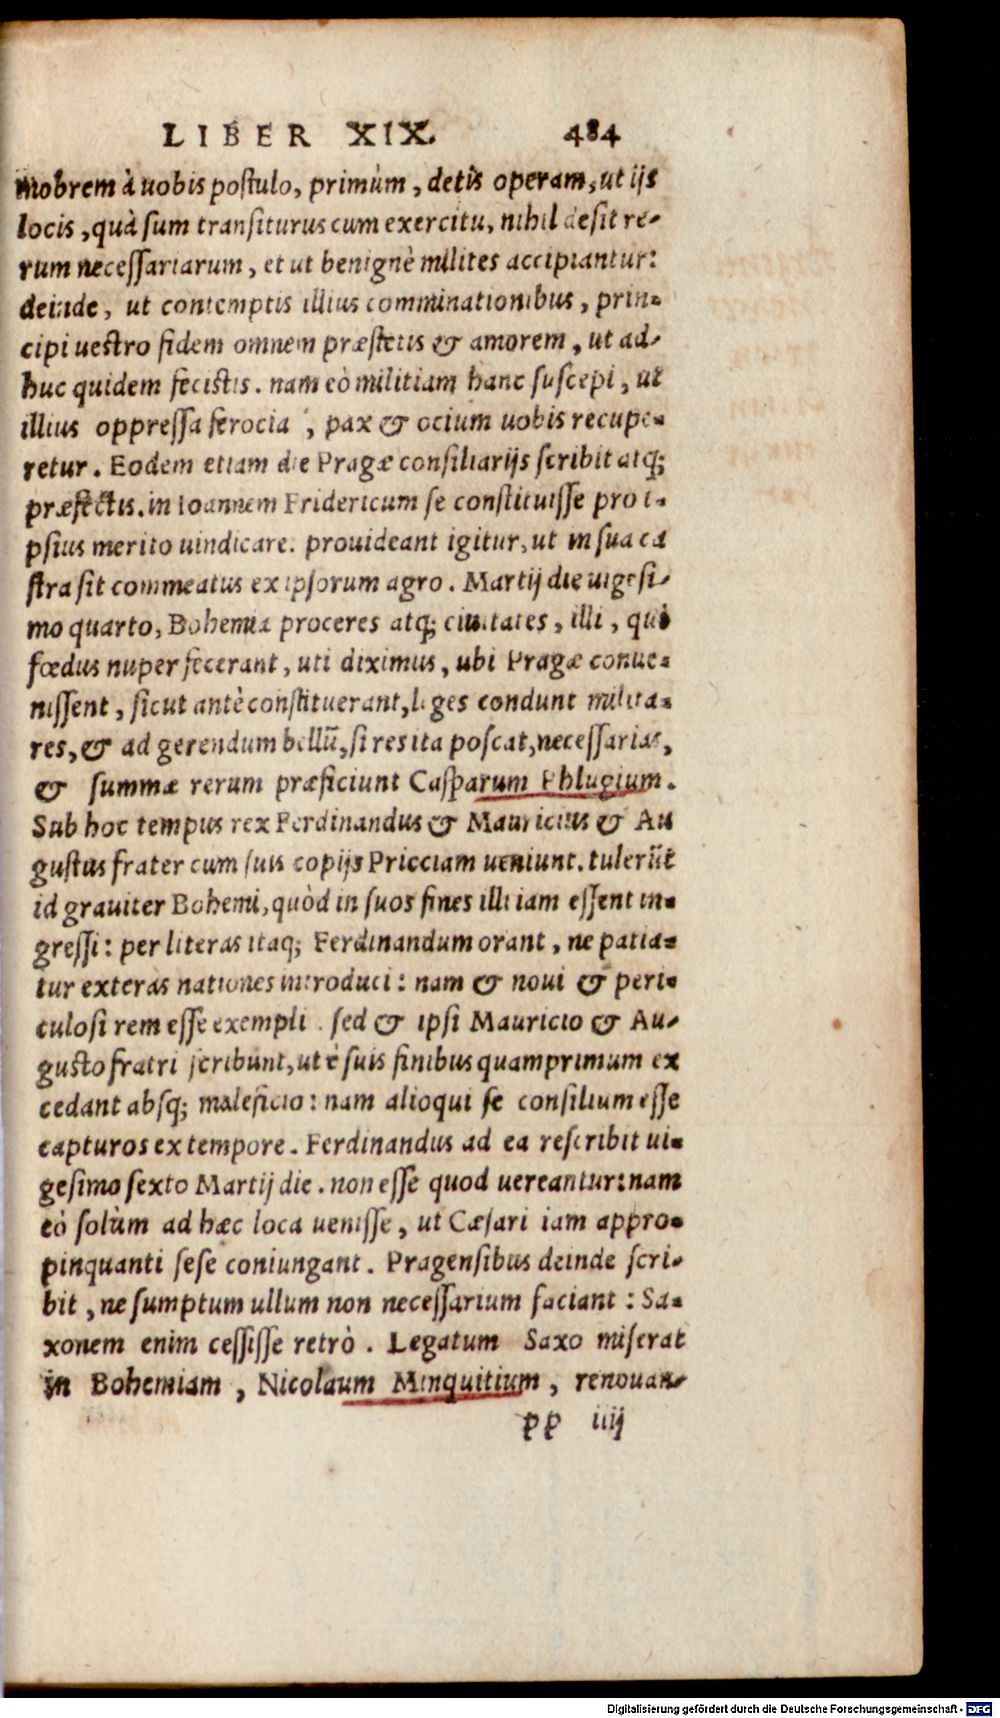 LIBER XIX. 484
mobrem à uobis postulo, primùm, detis operam, ut ijs
locis, quà sum transiturus cum exercitu, nihil desit re-
rum necessariarum, et ut benignè milites accipiantur:
deinde, ut contemptis illius comminationibus, prin-
cipi uestro fidem omnem præstetis & amorem, ut ad-
huc quidem fecistis. nam eò militiam hanc suscepi, ut
illius oppressa ferocia, pax & ocium uobis recupe-
retur. Eodem etiam die Pragæ consiliarijs scribit atq;
præfectis. in Ioannem Fridericum se constituisse pro i-
psius merito uindicare. prouideant igitur, ut in sua ca
stra sit commeatus ex ipsorum agro. Martij die uigesi-
mo quarto, Bohemiæ proceres atq; ciuitates, illi, qui
fœdus nuper fecerant, uti diximus, ubi Pragæ conue-
nissent, sicut antè constituerant, leges condunt milita-
res, & ad gerendum bellũ, si res ita poscat, necessarias,
& summæ rerum præficiunt Casparum Phlugium.
Sub hoc tempus rex Ferdinandus & Mauricius & Au
gustus frater cum suis copijs Pricciam ueniunt. tulerũt
id grauiter Bohemi, quòd in suos fines illi iam essent in-
gressi: per literas itaq; Ferdinandum orant, ne patia-
tur exteras nationes introduci: nam & noui & peri-
culosi rem esse exempli. sed & ipsi Mauricio & Au-
gusto fratri scribunt, ut è suis finibus quamprimum ex
cedant absq; maleficio: nam alioqui se consilium esse
capturos ex tempore. Ferdinandus ad ea rescribit ui-
gesimo sexto Martij die. non esse quod uereantur: nam
eò solùm ad hæc loca uenisse, ut Cæsari iam appro-
pinquanti sese coniungant. Pragensibus deinde scri-
bit, ne sumptum ullum non necessarium faciant: Sa-
xonem enim cessisse retrò. Legatum Saxo miserat
in Bohemiam, Nicolaum Minquitium, renouan-
pp iiij
Digitalisierung gefördert durch die Deutsche Forschungsgemeinschaft - DFG